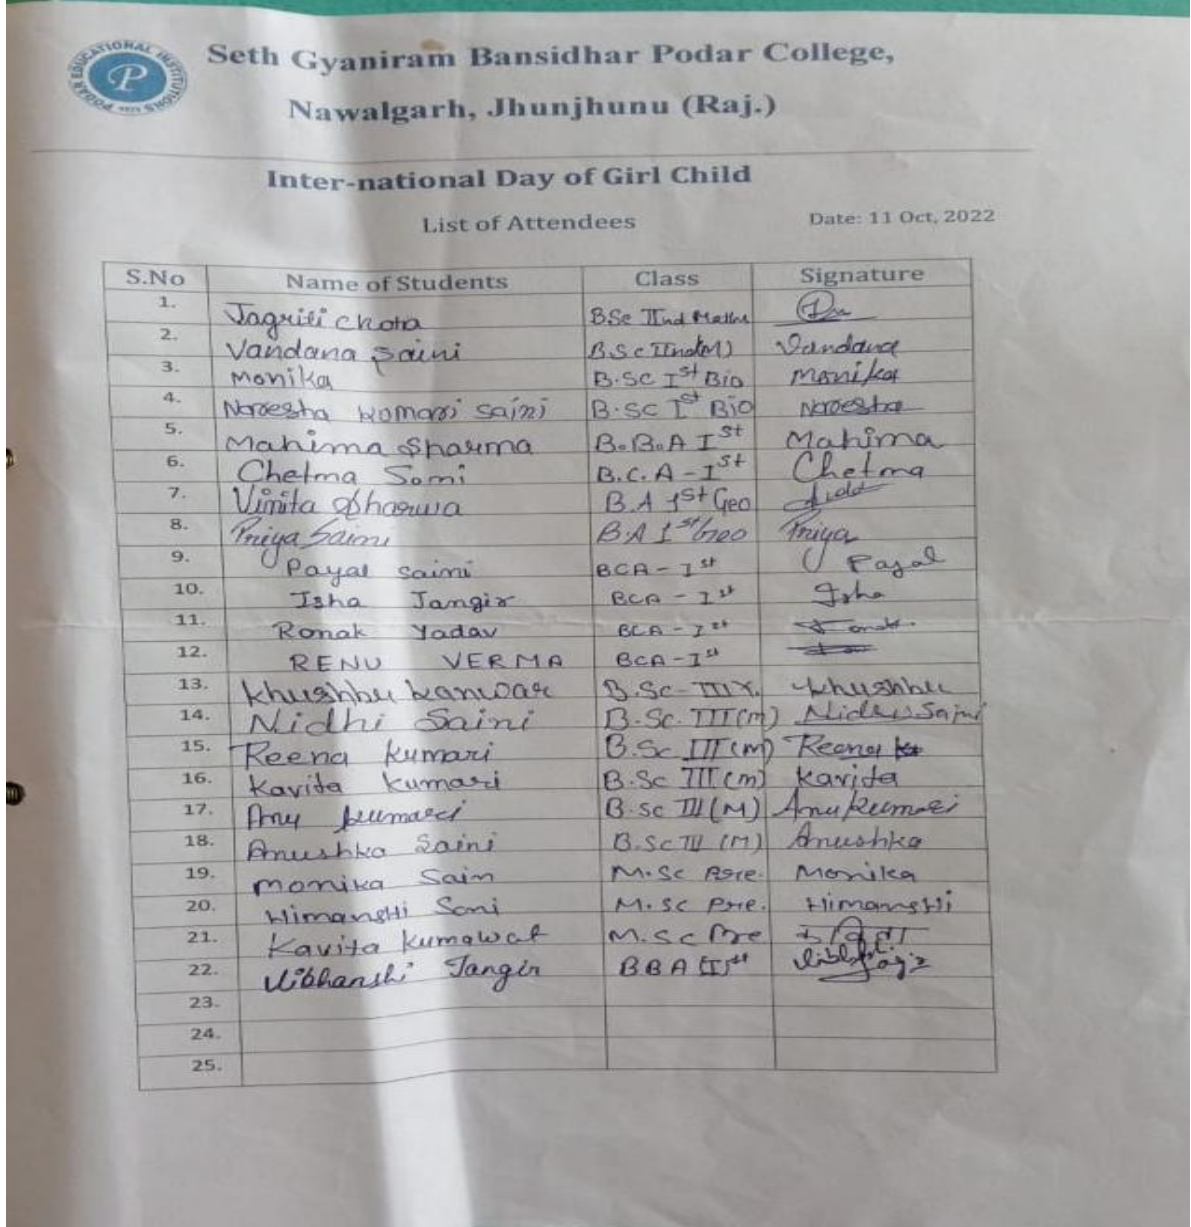 PODAR EDUCATIONAL INSTITUTIONS
P
Seth Gyaniram Bansidhar Podar College,
Nawalgarh, Jhunjhunu (Raj.)
Inter-national Day of Girl Child
List of Attendees Date: 11 Oct, 2022
S.No Name of Students Class Signature
1. Jagriti Chota BSc IInd Maths
2. Vandana Saini B.Sc IInd(M) Vandana
3. Monika B.SC Ist Bio Monika
4. Naresha Komari Saini B.SC Ist Bio Naresha
5. Mahima Sharma B.B.A Ist Mahima
6. Chetna Soni B.C.A - Ist Chetna
7. Vinita Sharma B.A 1st Geo
8. Priya Saini B.A 1st Geo Priya
9. Payal Saini BCA - Ist Payal
10. Isha Jangir BCA - Ist Isha
11. Ronak Yadav BCA - Ist
12. RENU VERMA BCA - Ist
13. Khushbu Kanwar B.Sc - III Khushbu
14. Nidhi Saini B.Sc. III(m) Nidhi Saini
15. Reena Kumari B.Sc III(m) Reena
16. Kavita Kumari B.Sc III(m) Kavita
17. Anu Kumari B.Sc III(M) Anu Kumari
18. Anushka Saini B.Sc III (M) Anushka
19. Monika Sain M.Sc Pre. Monika
20. Himanshi Soni M.Sc Pre. Himanshi
21. Kavita Kumawat M.Sc Pre कविता
22. Vibhanshi Jangir BBA Ist
23.
24.
25.